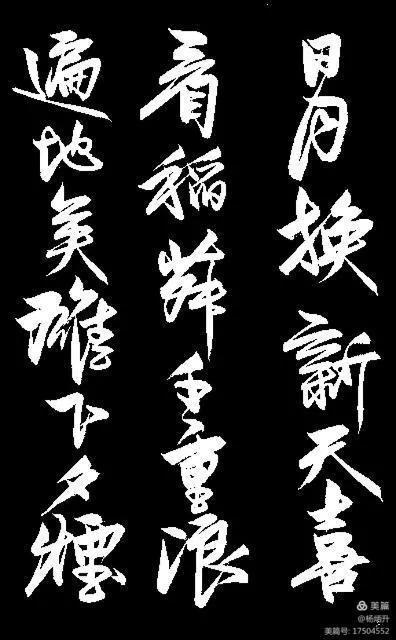 日月换新天喜
看稻菽千重浪
遍地英雄下夕煙
美篇
美篇号: 17504552